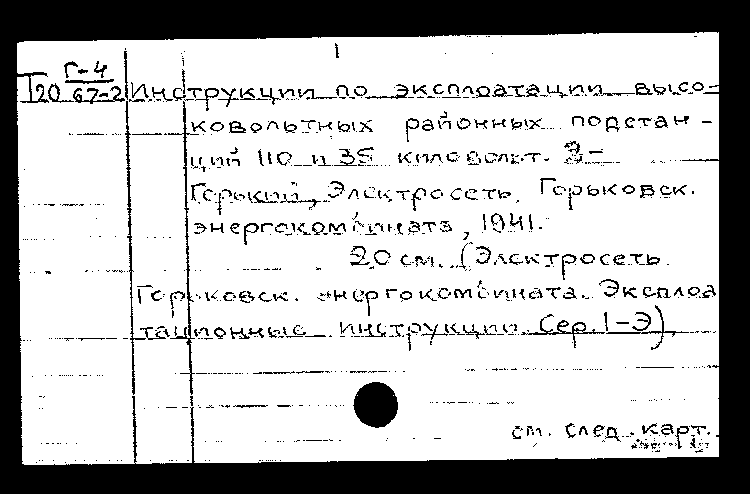 1
Г-4
Т20 67-2 Инструкции по эксплоатации высо-
ковольтных районных подстан-
ций 110 и 35 киловольт. 2-
Горький, Электросеть Горьковск.
энергокомбината, 1941.
20 см. (Электросеть
Горьковск. энергокомбината. Эксплоа
тационные инструкции. Сер. 1-Э)
см. след. карт.